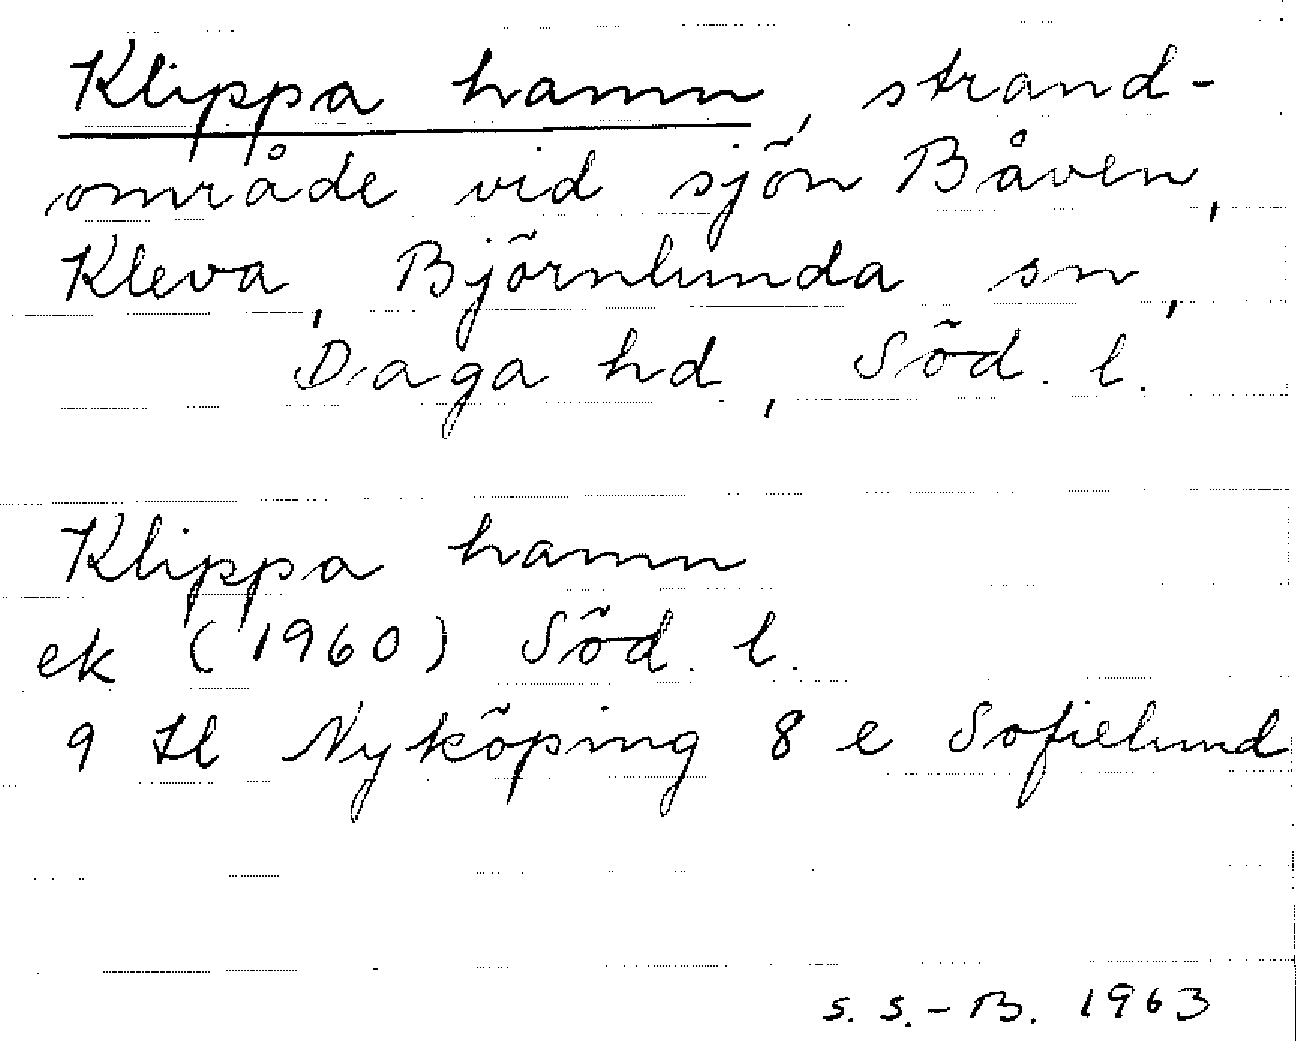 Klippa hamn, strand-
område vid sjön Båven,
Kleva, Björnlunda sn,
Daga hd, Söd. l.
Klippa hamn
ek (1960) Söd. l.
9 H Nyköping 8 e Sofielund
S. S.-B. 1963